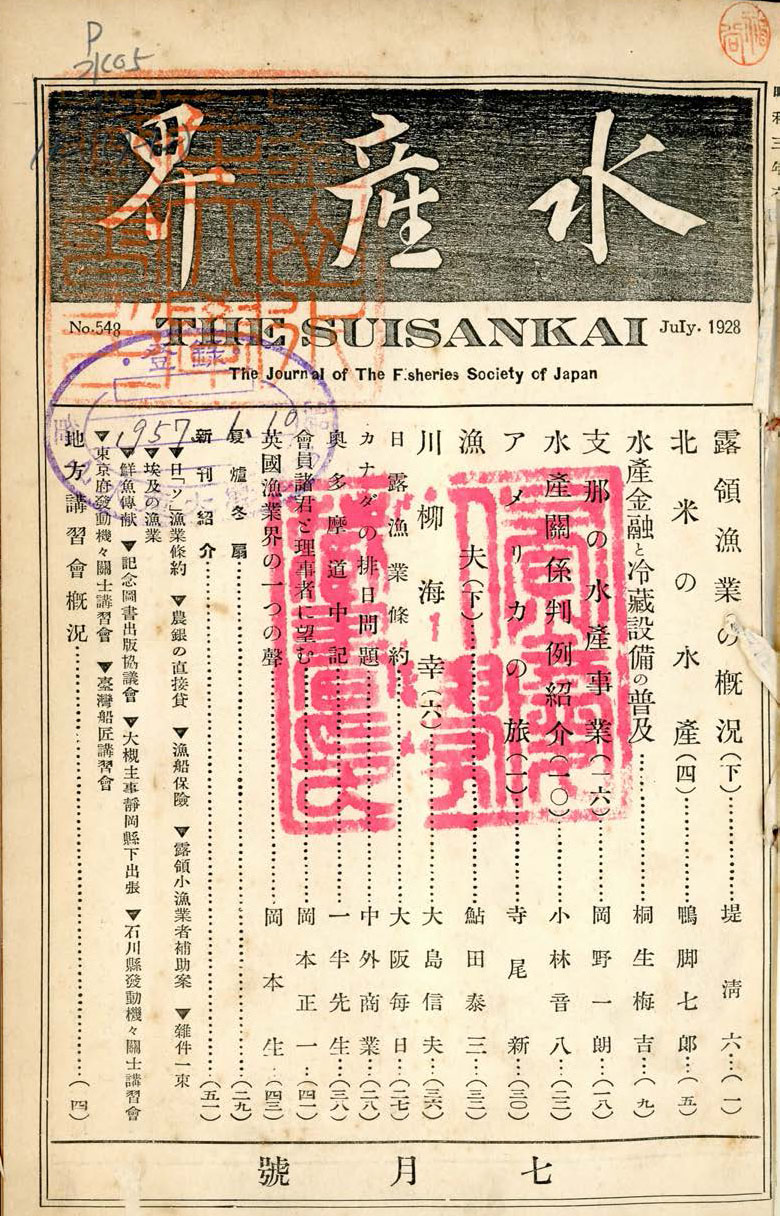 P
水產界
No.548
THE SUISANKAI
July. 1928
The Journal of The Fisheries Society of Japan
登錄
1957 1 10
露領漁業の槪況(下)…………堤淸六…(一)
北米の水產(四)…………鴨脚七郞…(五)
水產金融と冷藏設備の普及…………桐生梅吉…(九)
支那の水產事業(一六)…………岡野一朗…(一八)
水產關係判例紹介(一〇)…………小林音八…(二二)
アメリカの旅(一)…………寺尾新…(三〇)
漁夫(下)…………鮎田泰三…(三三)
川柳海ノ幸(六)…………大島信夫…(三六)
日露漁業條約…………大阪每日…(二七)
カナダの排日問題…………中外商業…(二八)
奧多摩道中記…………一半先生…(三八)
會員諸君と理事者に望む…………岡本正一…(四一)
英國漁業界の一つの聲…………岡本生…(四三)
夏爐冬扇…………(二九)
新刊紹介…………(五一)
▼日「ソ」漁業條約 ▼農銀の直接貸 ▼漁船保險 ▼露領小漁業者補助案 ▼雜件一束
▼埃及の漁業
▼鮮魚傳献 ▼記念圖書出版協議會 ▼大槻主事靜岡縣下出張 ▼石川縣發動機々關士講習會
▼東京府發動機々關士講習會 ▼臺灣船匠講習會
地方講習會槪況…………(四)
七月號